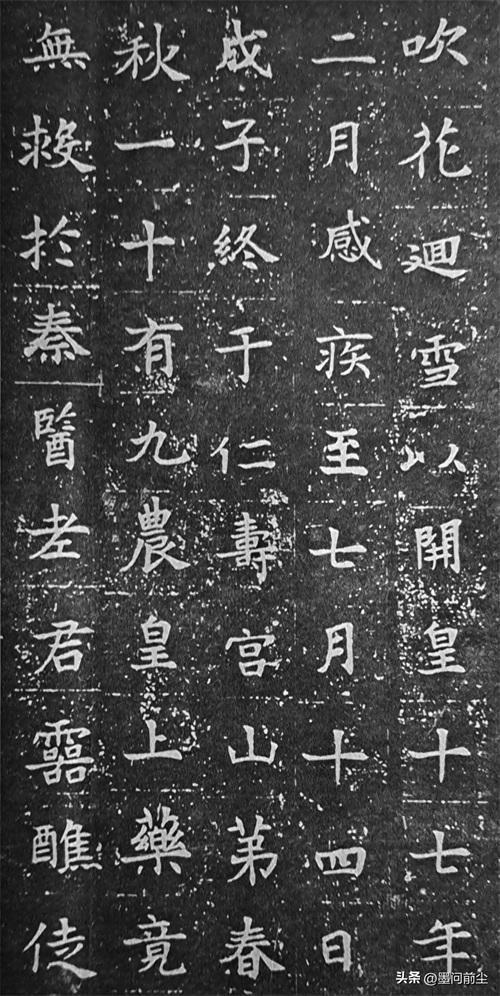 吹花迴雪以開皇十七年
二月感疾至七月十四日
戊子終于仁壽宮山第春
秋一十有九農皇上藥竟
無救於秦醫老君靈醮徒
头条 @墨问前尘